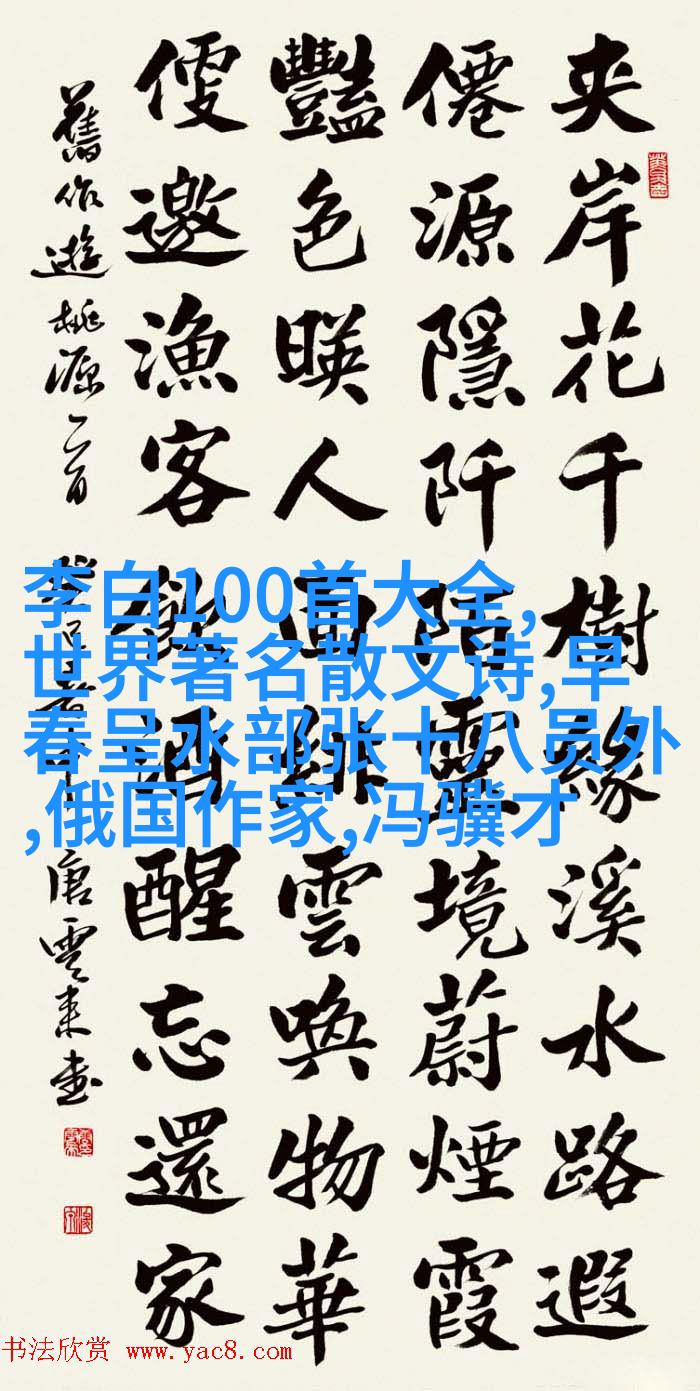 夹岸花千樹緣溪水路遐
僊源隱阡陌靈境蔚煙霞
豔色暎人面緋雲喚物華
便邀漁客酒醒忘還家
舊作遊桃源二首
唐雲來書
李白100首大全,
世界著名散文诗,早
春呈水部张十八员外
,俄国作家,冯骥才
书法欣赏 www.yac8.com